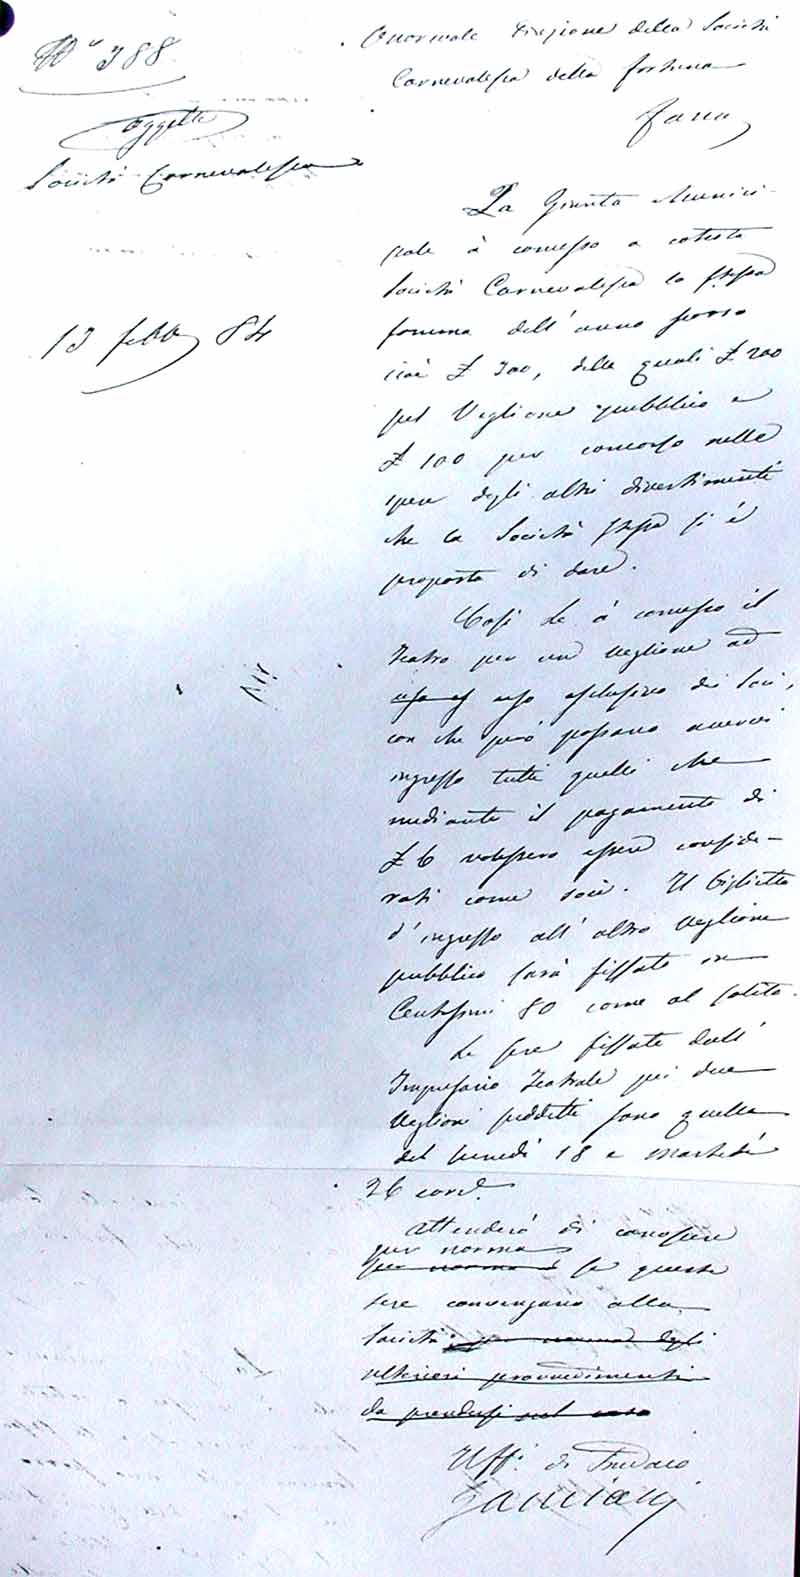 N° 388
Oggetto
Società Carnevalesca
13 febb 84
Onorevole Direzione della Società
Carnevalesca della fortuna
Fano
La Giunta Munici-
pale à concesso a cotesta
Società Carnevalesca la stessa
somma dell'anno scorso
cioè £ 300, delle quali £ 200
pel Veglione pubblico e
£ 100 per concorso nelle
spese degli altri divertimenti
che la Società stessa si è
proposta di dare.
Così Le à concesso il
Teatro per un veglione ad
uso esclusivo dei Soci,
con che però possano avervi
ingresso tutti quelli che
mediante il pagamento di
£ 6 volessero essere conside-
rati come soci. Il biglietto
d'ingresso all'altro veglione
pubblico sarà fissato in
Centesimi 80 come al solito.
Le sere fissate dall'
Impresario Teatrale pei due
Veglioni suddetti sono quella
del lunedì 18 e martedì
26 corr.e
Attenderò di conoscere
per norma
per norma se queste
sere convengano alla
Società per norma degli
ulteriori provvedimenti
da prendersi nel caso
Uff. di Sindaco